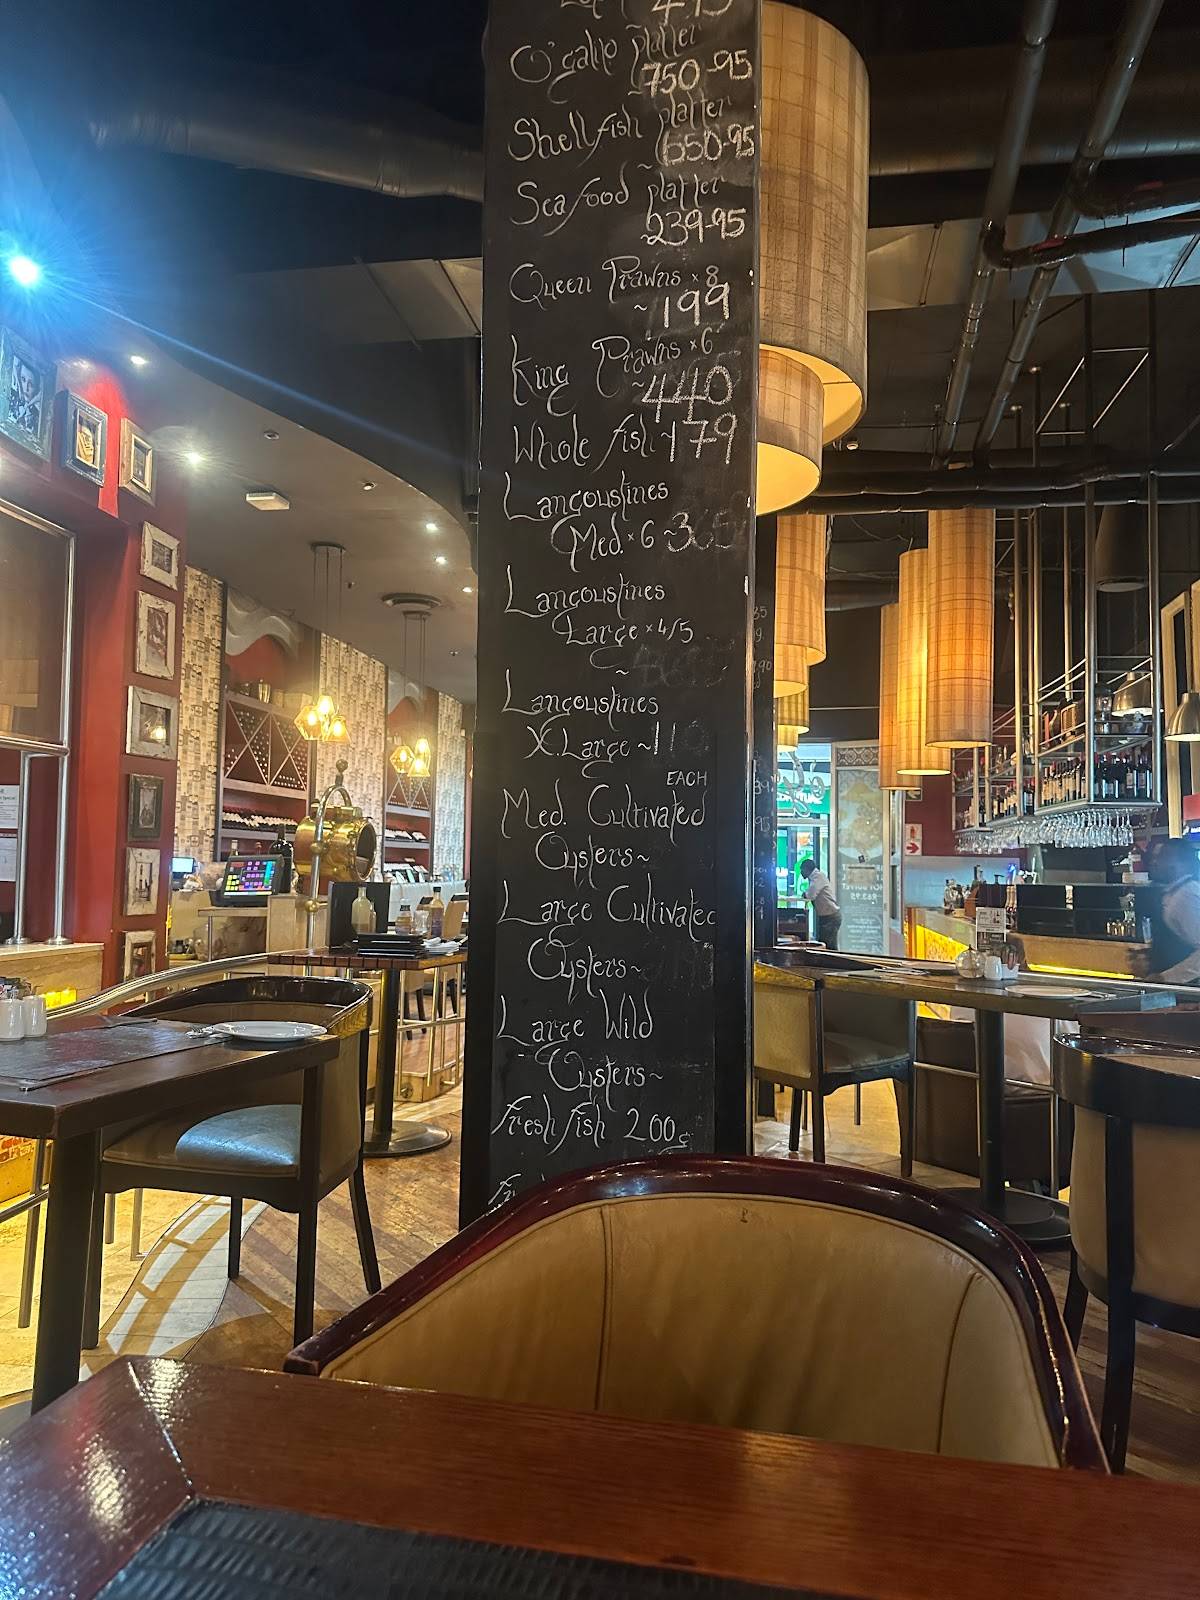 O'galito platter
~750-95
Shellfish platter
~650-95
Seafood platter
~239-95
Queen Prawns × 8
~199
King Prawns × 6
~440
Whole fish ~179
Langoustines
Med. × 6 ~365
Langoustines
Large × 4/5
~
Langoustines
X.Large ~11
EACH
Med. Cultivated
Oysters~
Large Cultivated
Oysters~
Large Wild
Oysters~
Fresh fish 200g